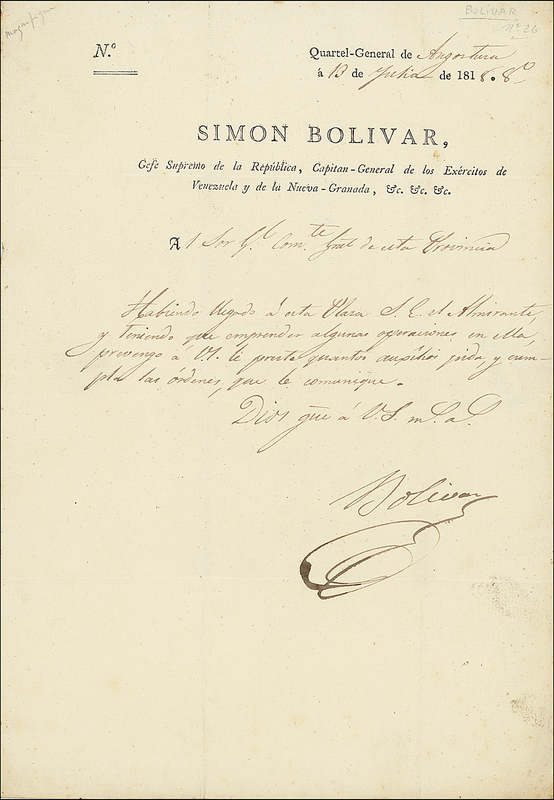 BOLIVAR
Nº 26
N.º
Quartel-General de Angostura
á 13 de Julio de 1818. 8º
SIMON BOLIVAR,
Gefe Supremo de la República, Capitan-General de los Exércitos de
Venezuela y de la Nueva-Granada, &c. &c. &c.
A l Sor Gl. Comte. Gral de esta Provincia
Habiendo llegado á esta Plaza S. E. el Almirante,
y teniendo que emprender algunas operaciones en ella,
prevengo á V.S. le preste quantos auxilios pida, y cum-
pla las órdenes, que le comunique.
Dios gue á V.S. m.s a.s
Bolivar